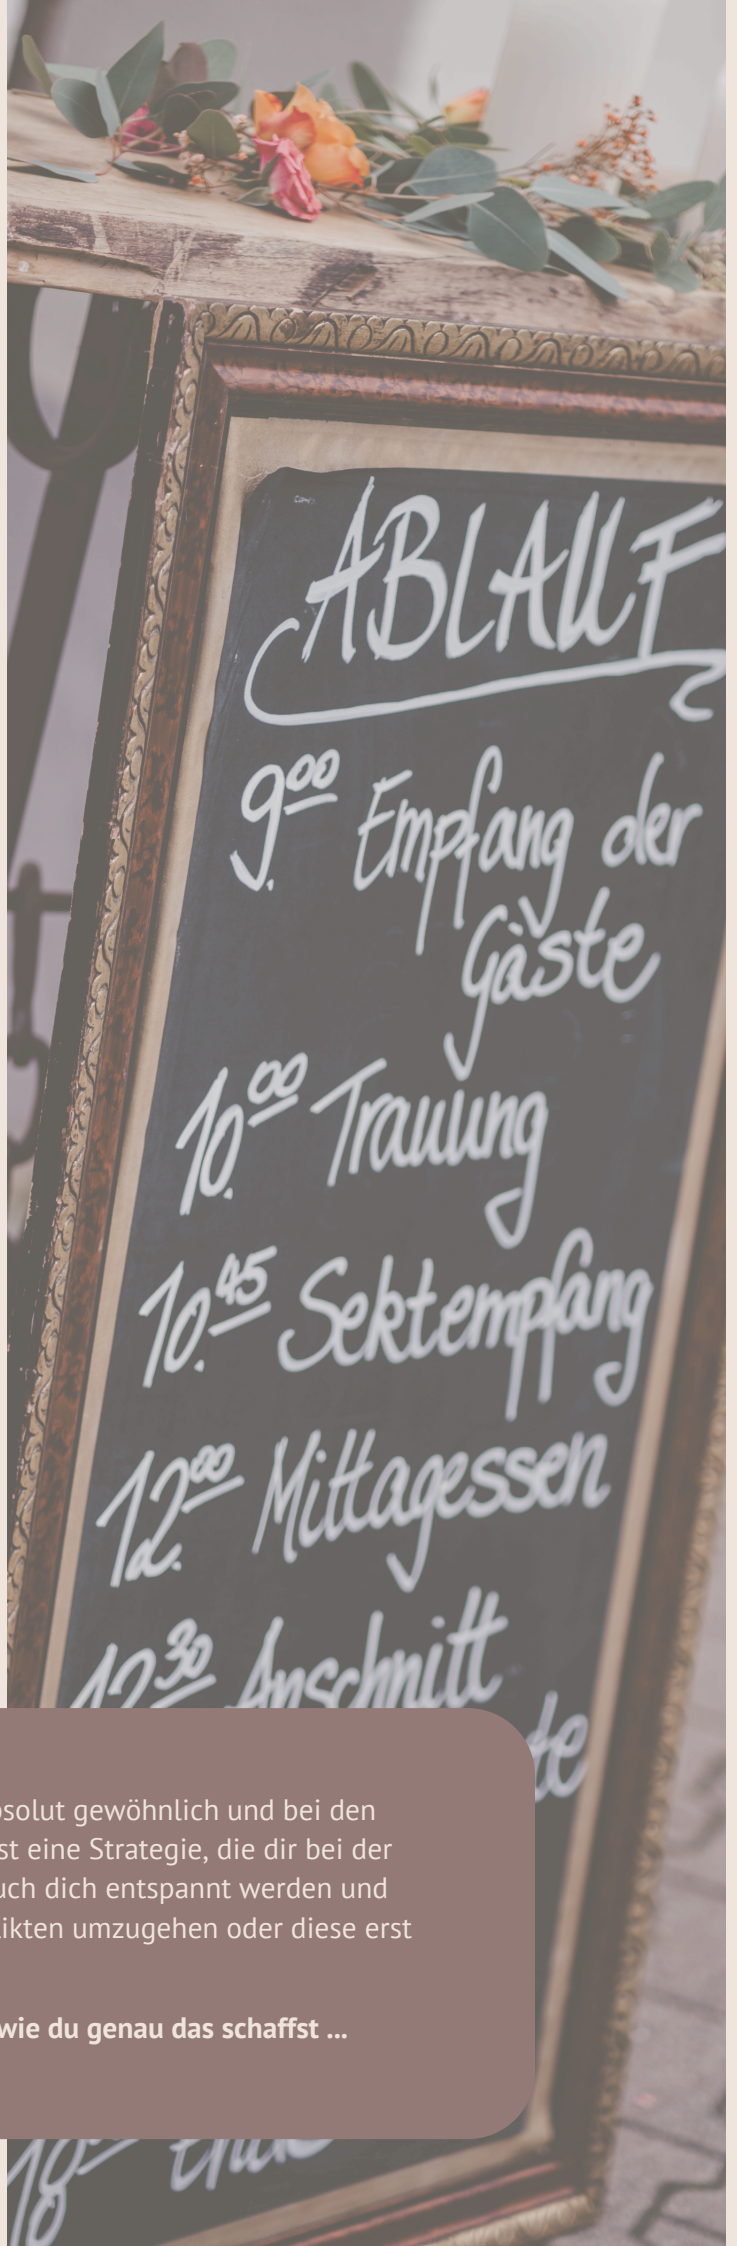 ABLAUF
9.00 Empfang der
Gäste
10.00 Trauung
10.45 Sektempfang
12.00 Mittagessen
12.30 Anschnitt
solut gewöhnlich und bei den
st eine Strategie, die dir bei der
uch dich entspannt werden und
ikten umzugehen oder diese erst
wie du genau das schaffst ...